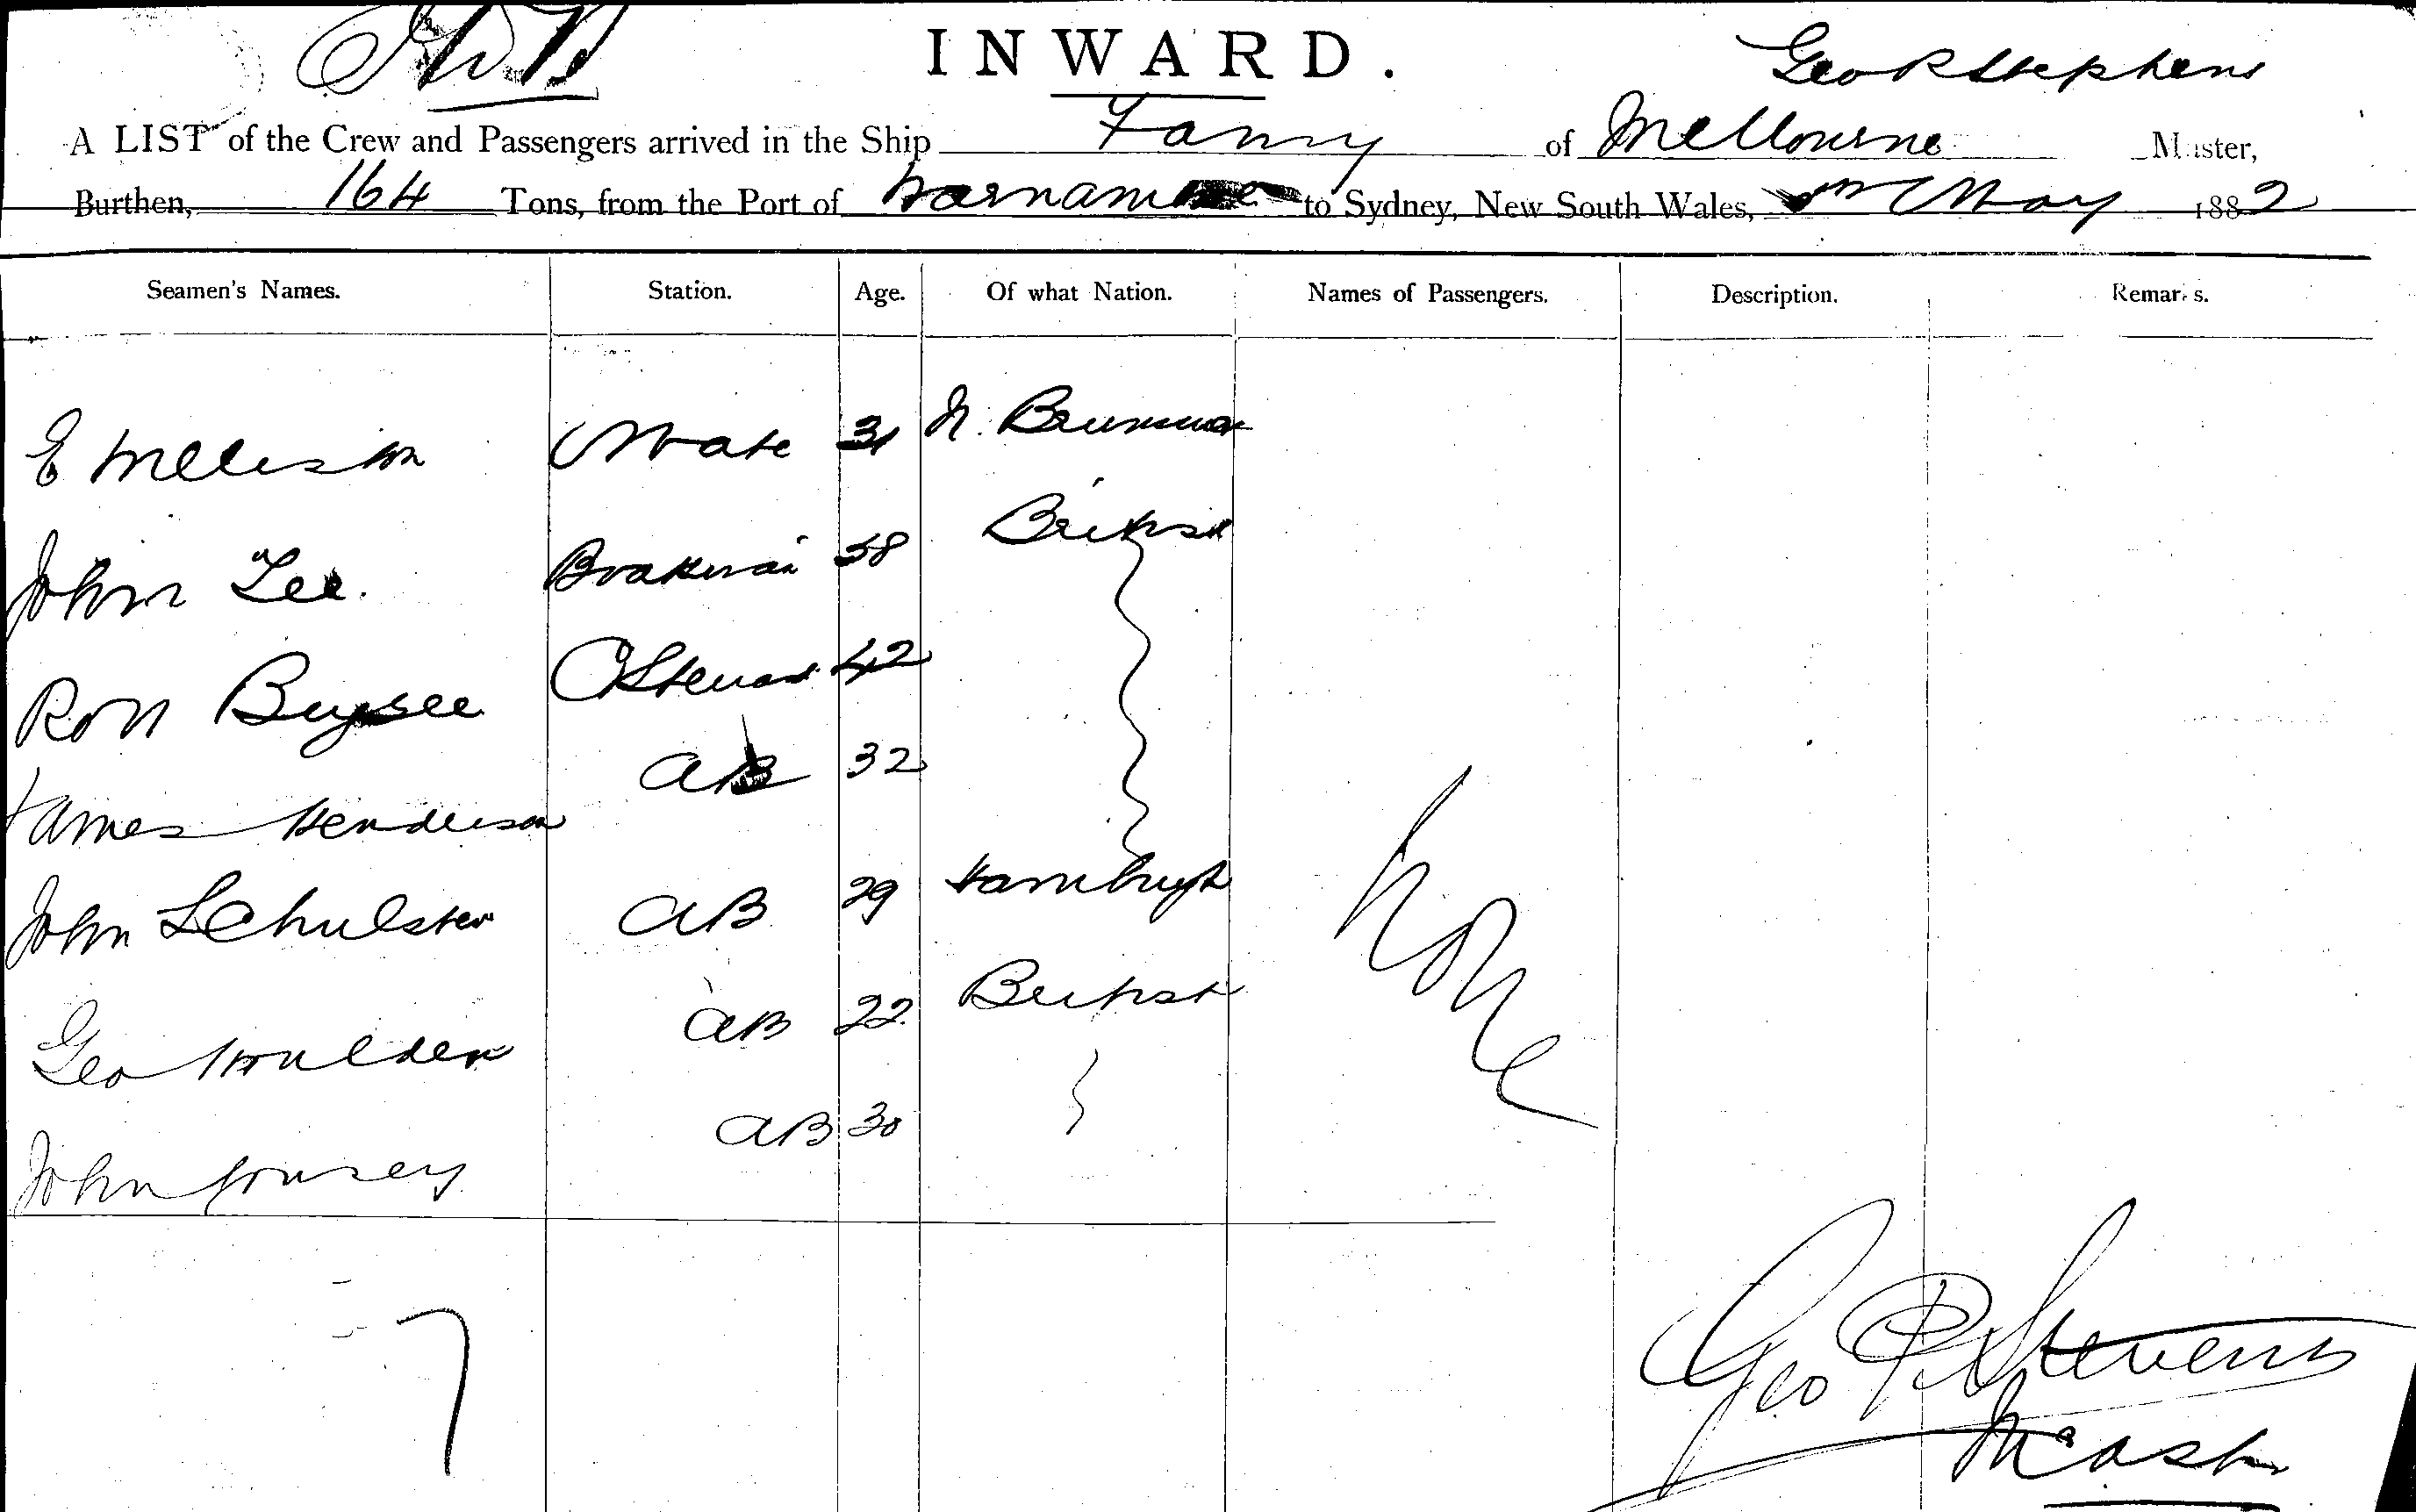 INWARD.
Geo R Stephens
A LIST of the Crew and Passengers arrived in the Ship Fanny of Melbourne Master,
Burthen, 164 Tons, from the Port of to Sydney, New South Wales, May 1882
Seamen's Names. Station. Age. Of what Nation. Names of Passengers. Description. Remarks.
E Mate 31 N.
John Lee. 38 British
C Steward 42
James Henderson AB 32
John Schulster AB 29 Hamburgh
Geo Houlden AB 22 British
John AB 30
None
7
Geo R Stevens
Mast